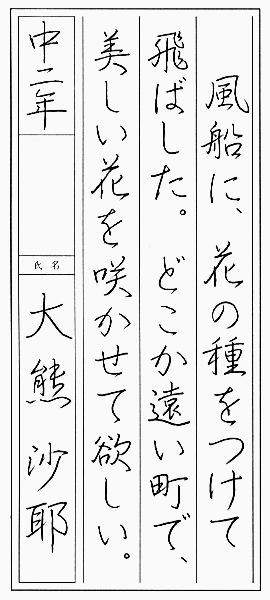 風船に、花の種をつけて
飛ばした。どこか遠い町で、
美しい花を咲かせて欲しい。
中二年
氏名
大熊沙耶